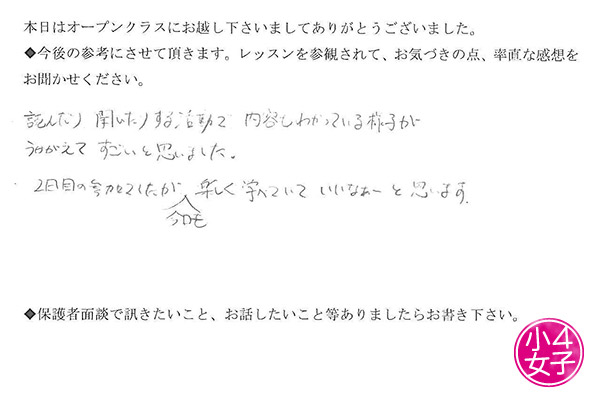 本日はオープンクラスにお越し下さいましてありがとうございました。
◆今後の参考にさせて頂きます。レッスンを参観されて、お気づきの点、率直な感想を
お聞かせください。
読んだり 聞いたりする活動で 内容もわかっている様子が
うかがえて すごいと思いました。
・2回目の参加でしたが、今回も楽しく学べていて いいなぁーと思います。
◆保護者面談で訊きたいこと、お話したいこと等ありましたらお書き下さい。
小4
女子